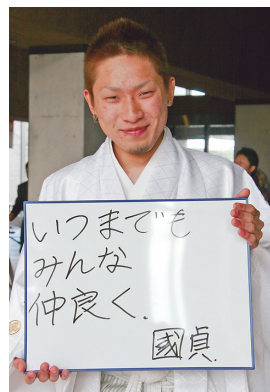 いつまでも
みんな
仲良く.
國貞.